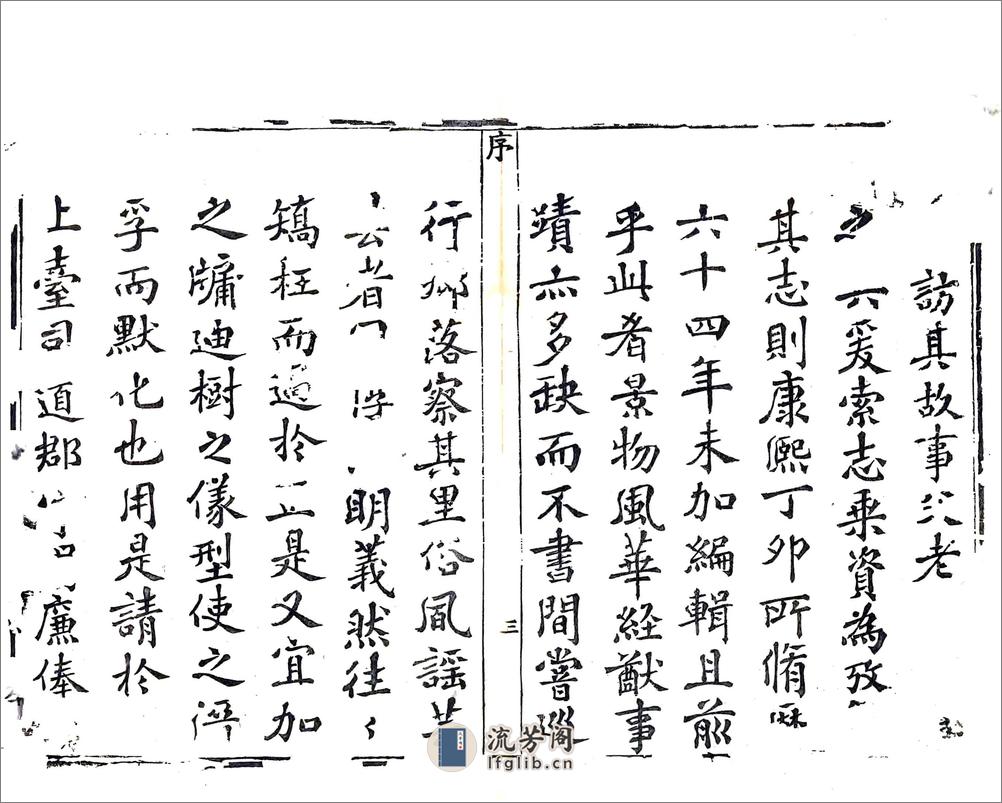 訪其故事父老
爰索志乘資為攷
其志則康熈丁卯所脩
六十四年未加編輯且前
乎此者景物風華経猷事
蹟亦多缺而不書間嘗巡
序
三
行鄉落察其里俗風謡其
者 明義然往
矯枉而過於正是又宜加
之牗迪樹之儀型使之
孚而默化也用是請於
上臺司道郡 廉俸
流芳阁
lfglib.cn